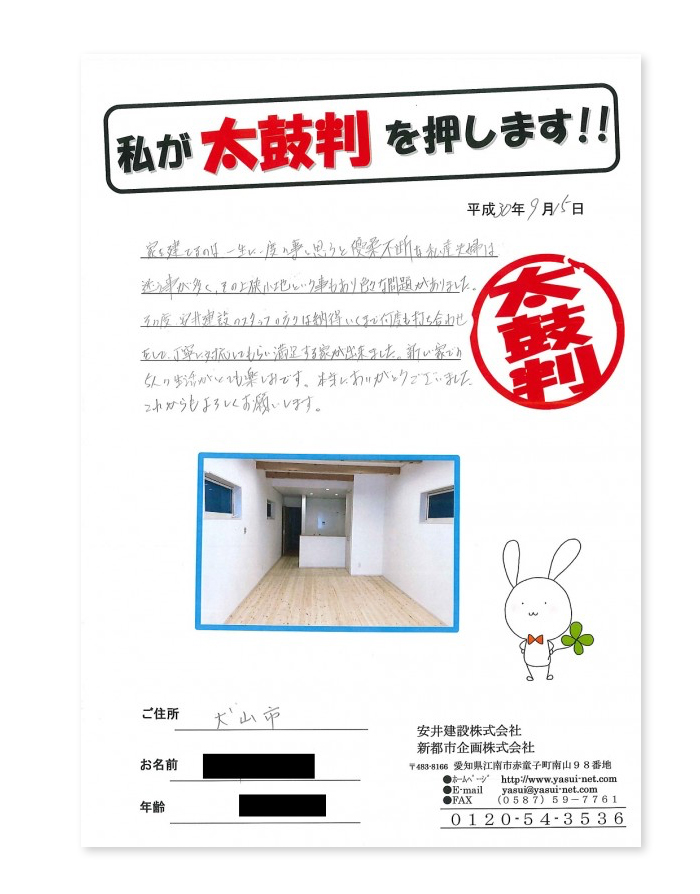 私が太鼓判を押します!!
平成30年9月15日
家を建てるのは一生に一度の事と思うと優柔不断な私達夫婦は
迷う事が多く、その上狭小地という事もあり色々な問題がありました。
その度、安井建設のスタッフの方々は納得いくまで何度も打ち合わせ
をして、丁寧に対応してもらい満足する家が出来ました。新しい家での
5人の生活がとても楽しみです。本当にありがとうございました
これからもよろしくお願いします。
太鼓判
ご住所 犬山市
お名前
年齢
安井建設株式会社
新都市企画株式会社
〒483-8166 愛知県江南市赤童子町南山98番地
●ホームページ http://www.yasui-net.com
●E-mail yasui@yasui-net.com
●FAX (0587)59-7761
0120-54-3536